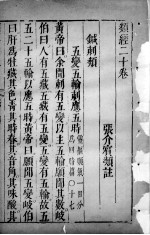 類經二十卷
張介賓類註
鍼刺類
五變五輸刺應五時 靈樞順氣一日分
爲四時篇〇十七
黃帝曰余聞刺有五變以主五輸願聞其數岐
伯曰人有五藏五藏有五變五變有五輸故五
五二十五輸以應五時黃帝曰願聞五變岐伯
曰肝爲牡藏其色青其時春其音角其味酸其